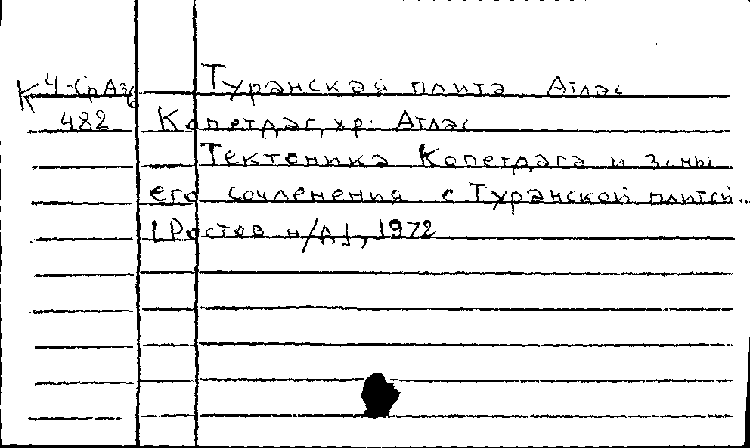 К 4-СрАз Туранская плита Атлас
482 Копетдаг, хр. Атлас
Тектоника Копетдага и зоны
его сочленения с Туранской плитой..
[Ростов н/Д], 1972